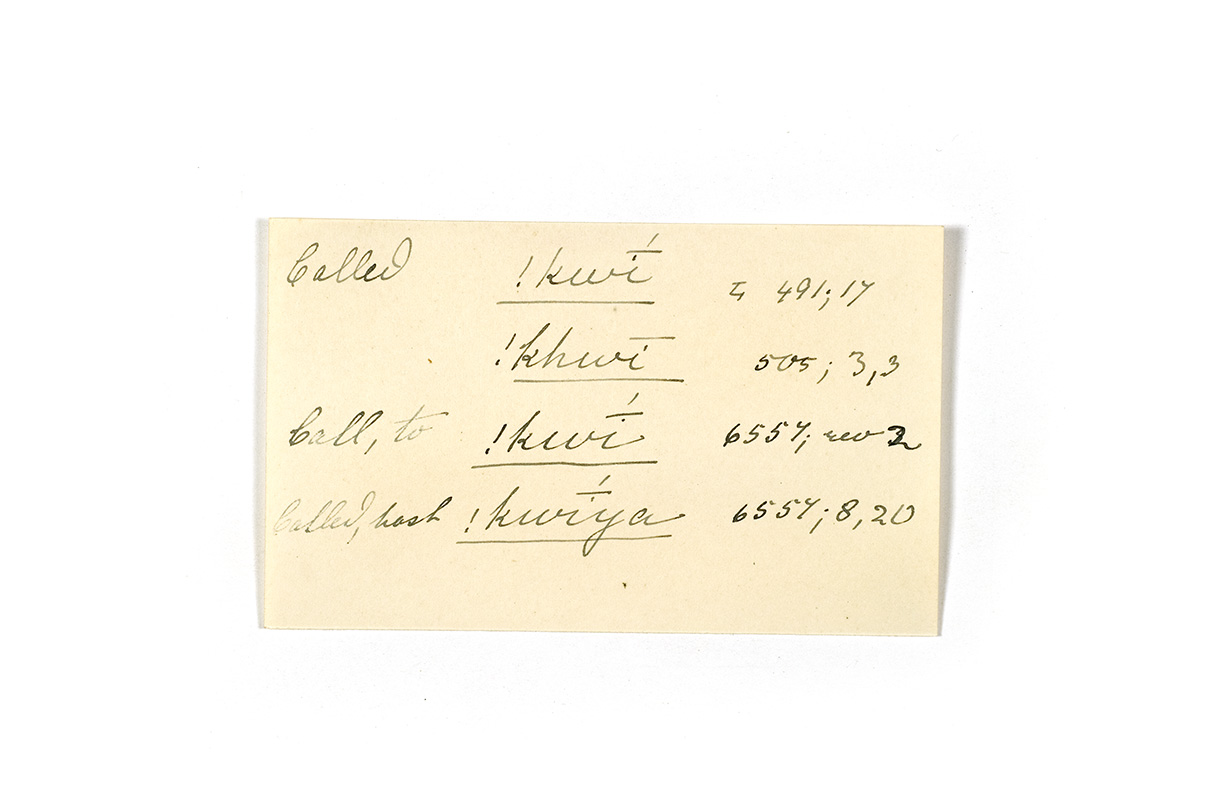 Called !kwī́ 491; 17
!khwī 505; 3, 3
Call, to !kwī́ 6557; rev 2
Called, hast !kwī́ya 6557; 8, 20